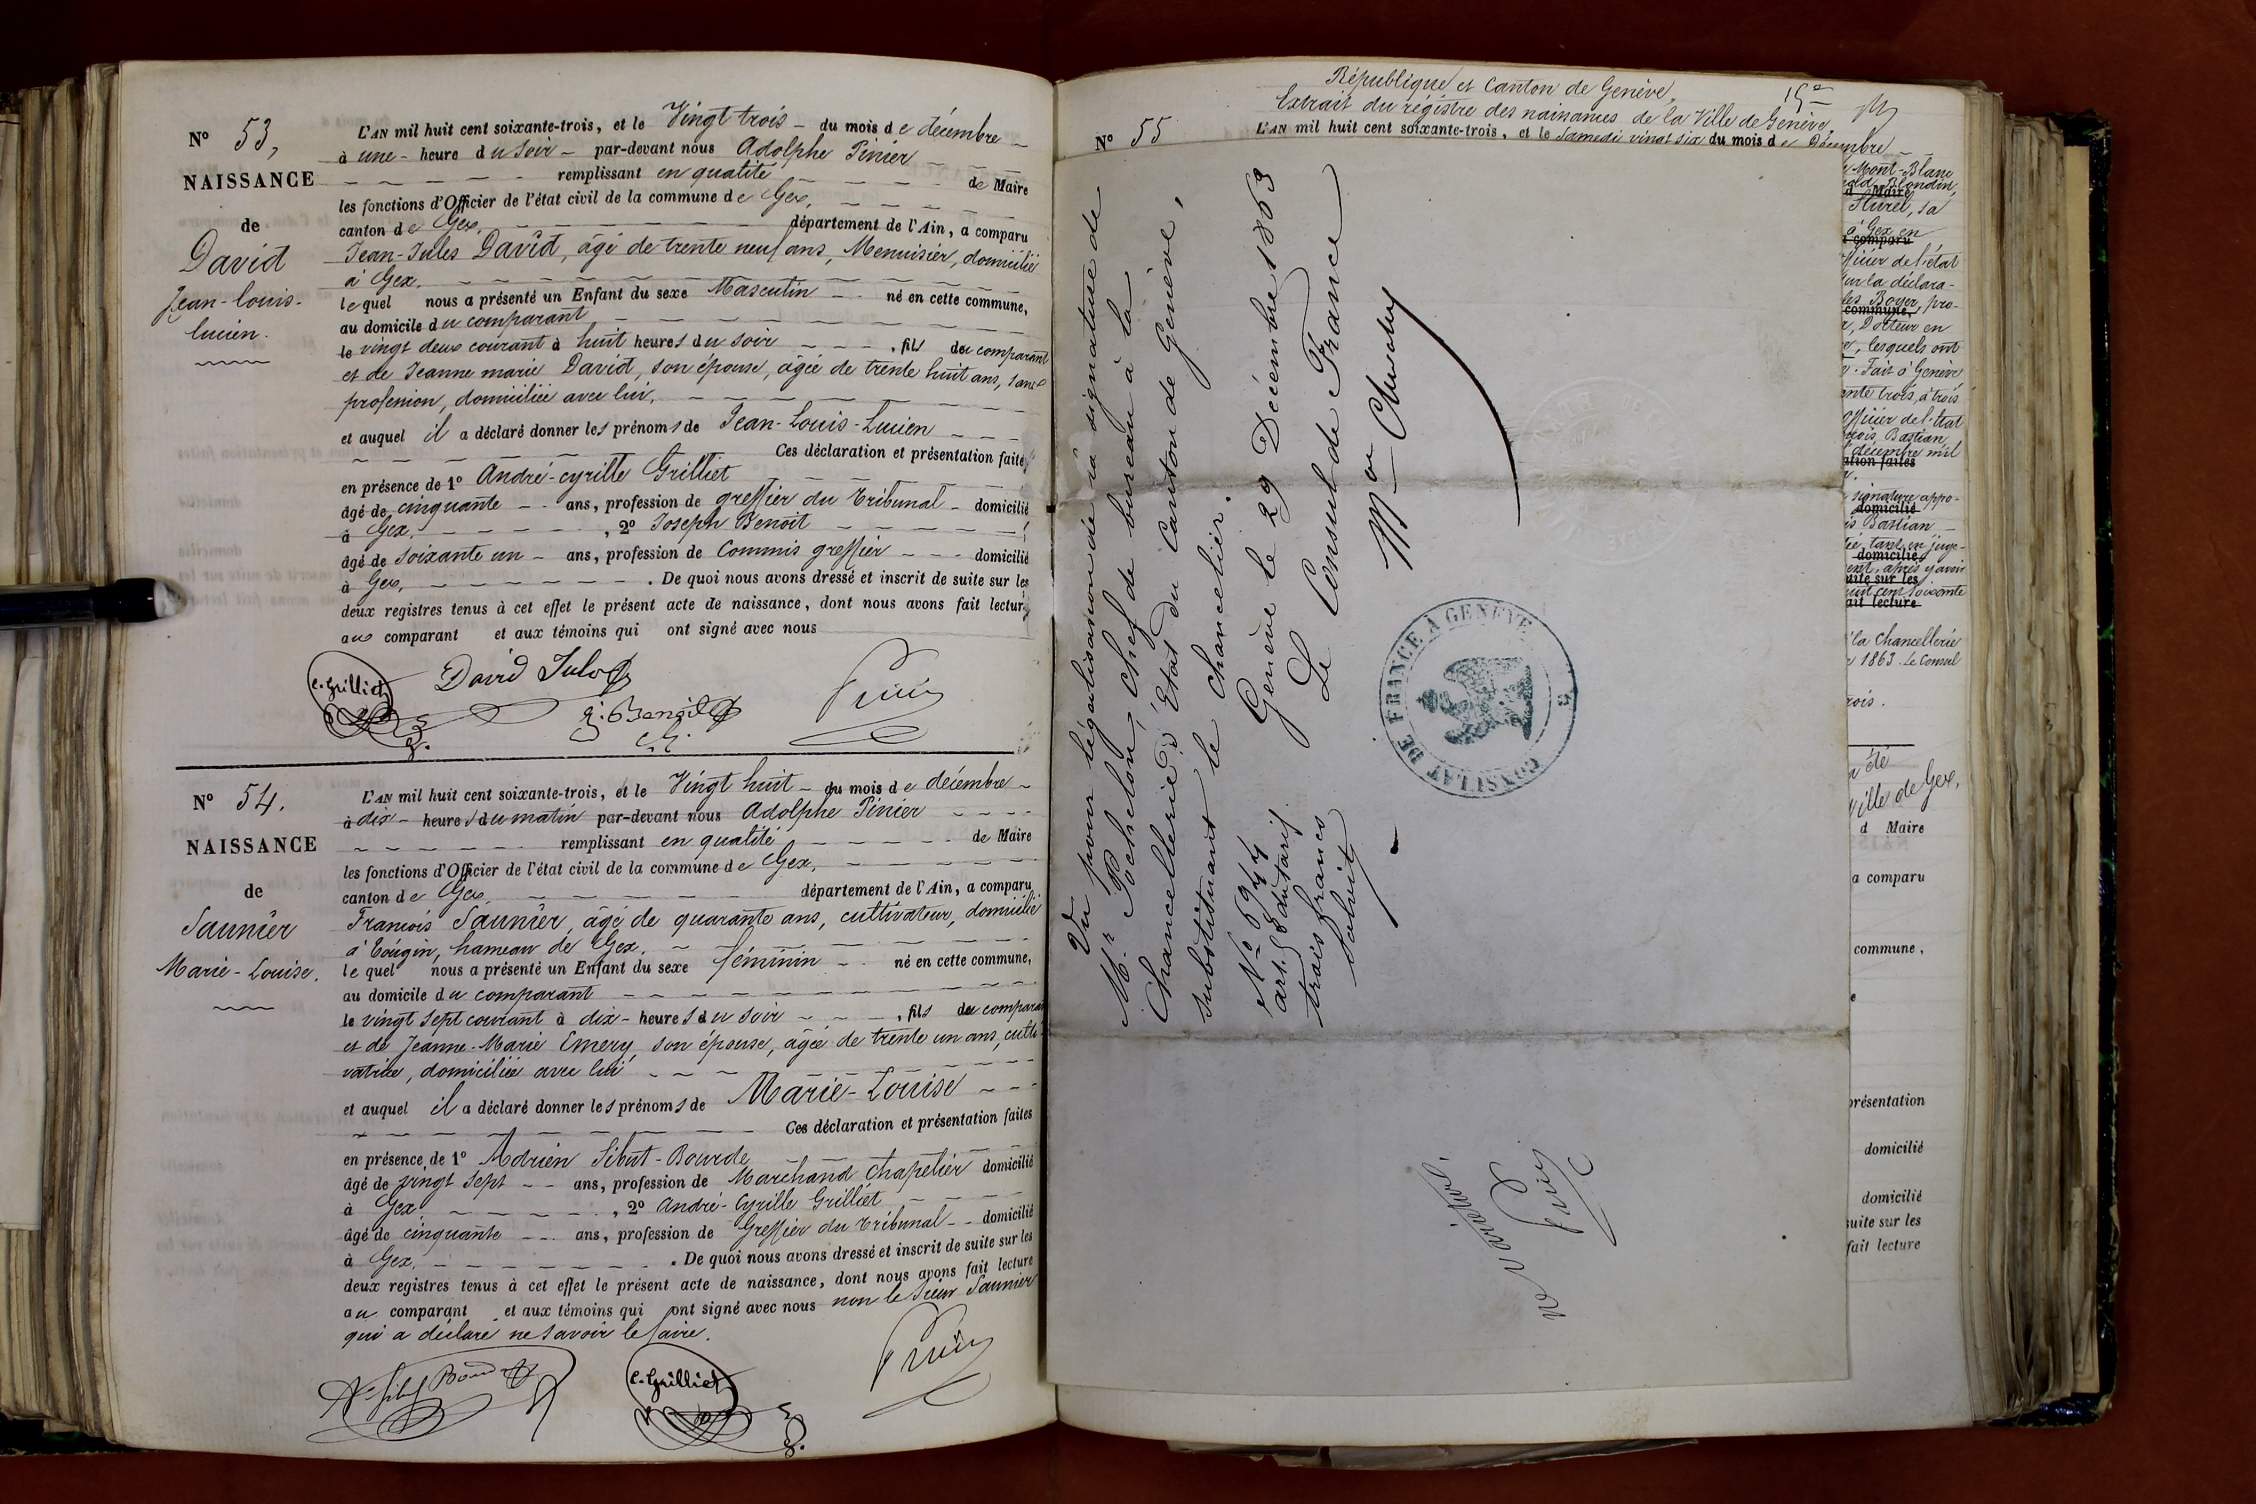 N° 53,
NAISSANCE
de
David
Jean-Louis-
Lucien.
L'AN mil huit cent soixante-trois, et le Vingt trois du mois de décembre
à une heure du soir par-devant nous Adolphe Pinier
remplissant en qualité de Maire
les fonctions d'Officier de l'état civil de la commune de Gex,
canton de Gex, département de l'Ain, a comparu
Jean-Jules David, âgé de trente neuf ans, Menuisier, domicilié
à Gex.
lequel nous a présenté un Enfant du sexe Masculin né en cette commune,
au domicile du comparant
le vingt deux courant à huit heures du soir, fils du comparant
et de Jeanne marie David, son épouse, âgée de trente huit ans, sans
profession, domiciliée avec lui,
et auquel il a déclaré donner les prénoms de Jean-Louis-Lucien
Ces déclaration et présentation faites
en présence de 1° André-cyrille Grilliet
âgé de cinquante ans, profession de greffier du Tribunal domicilié
à Gex, 2° Joseph Benoit
âgé de soixante un ans, profession de Commis greffier domicilié
à Gex, . De quoi nous avons dressé et inscrit de suite sur les
deux registres tenus à cet effet le présent acte de naissance, dont nous avons fait lecture
au comparant et aux témoins qui ont signé avec nous
C. Grilliet David Jules
J. Benoit Pinier
N° 54.
NAISSANCE
de
Saunier
Marie-Louise.
L'AN mil huit cent soixante-trois, et le Vingt huit du mois de décembre
à dix heures du matin par-devant nous Adolphe Pinier
remplissant en qualité de Maire
les fonctions d'Officier de l'état civil de la commune de Gex,
canton de Gex département de l'Ain, a comparu
François Saunier, âgé de quarante ans, cultivateur, domicilié
à Tougin, hameau de Gex.
lequel nous a présenté un Enfant du sexe féminin né en cette commune,
au domicile du comparant
le vingt sept courant à dix heures du soir, fils du comparant
et de Jeanne-Marie Emery, son épouse, âgée de trente un ans, culti
vatrice, domiciliée avec lui
et auquel il a déclaré donner les prénoms de Marie-Louise
Ces déclaration et présentation faites
en présence de 1° Adrien Sibut-Bourde
âgé de vingt sept ans, profession de Marchand chapelier domicilié
à Gex, 2° André-Cyrille Grilliet
âgé de cinquante ans, profession de Greffier du Tribunal domicilié
à Gex. . De quoi nous avons dressé et inscrit de suite sur les
deux registres tenus à cet effet le présent acte de naissance, dont nous avons fait lecture
au comparant et aux témoins qui ont signé avec nous non le Sieur Saunier
qui a déclaré ne savoir le faire.
C. Grilliet Pinier
République et Canton de Genève,
Extrait du régistre des naissances de la Ville de Genève
N° 55
L'AN mil huit cent soixante-trois, et le Samedi vingt six du mois de Décembre
Vu pour légalisation de la signature de
Mr. Pochelon, chef de bureau à la
Chancellerie d'Etat du canton de Genève,
substituant le chancelier.
Genève le 29 Décembre 1863
Le Consul de France
N° 6944
art. 58 du tarif.
trois francs
CONSULAT DE FRANCE A GENÈVE
ne varietur.
Pinier
Mont-Blanc
Blondin,
d Maire
Sturel, sa
à Gex en
a comparu
officier de l'état
sur la déclara-
les Boyer, pro-
commune,
Docteur en
lesquels ont
Fait à Genève
trois, à trois
officier de l'état
Bastian
décembre mil
ation faites
signature appo-
domicilié
Bastian
domicilié
après y avoir
uite sur les
cent soixante
ait lecture
la Chancellerie
1863. Le Consul
rois.
a été
ville de Gex,
d Maire
a comparu
commune,
présentation
domicilié
domicilié
suite sur les
fait lecture